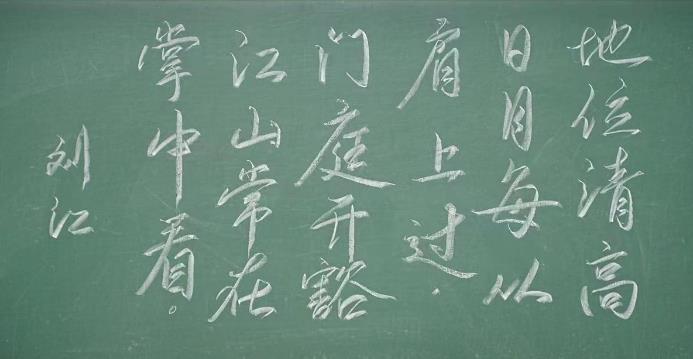 地位清高
日月每从
肩上过.
门庭开豁
江山常在
掌中看。
刘江